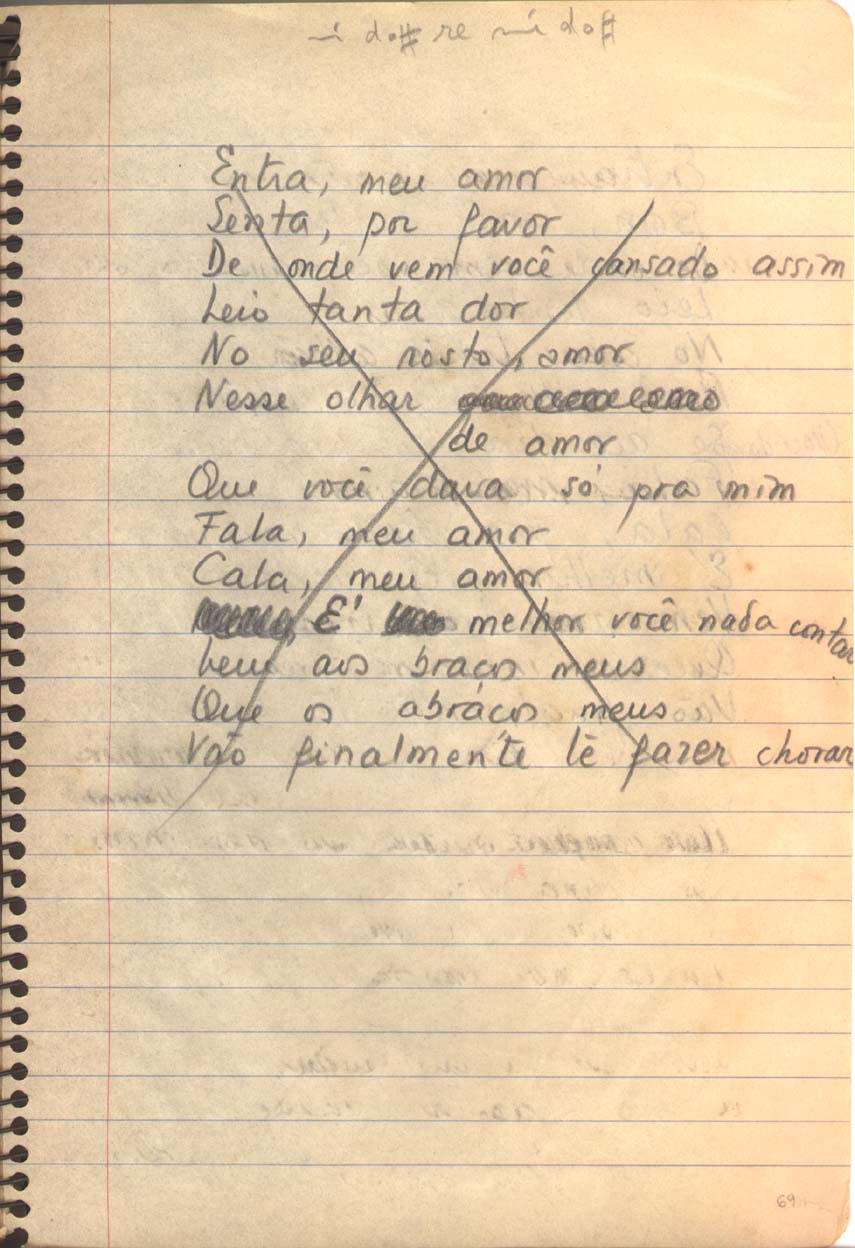 mi do# re mi do#
Entra, meu amor
Senta, por favor
De onde vem você cansado assim
Leio tanta dor
No seu rosto, amor
Nesse olhar
de amor
Que você dava só pra mim
Fala, meu amor
Cala, meu amor
É melhor você nada contar
Vem aos braços meus
Que os abraços meus
Vão finalmente lê fazer chorar
69